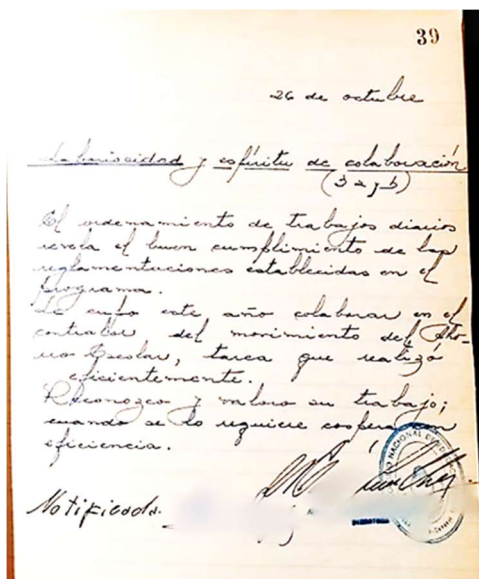 39
26 de octubre
Laboriosidad y espíritu de colaboración
(3 a y b)
El ordenamiento de trabajos diarios
revela el buen cumplimiento de las
reglamentaciones establecidas en el
programa.
Le cupo este año colaborar en el
contralor del movimiento del Aho-
rro Escolar, tarea que realizó
eficientemente.
Reconozco y valoro su trabajo;
cuando se lo requiere coopera con
eficiencia.
NACIONAL DE
Notificada.